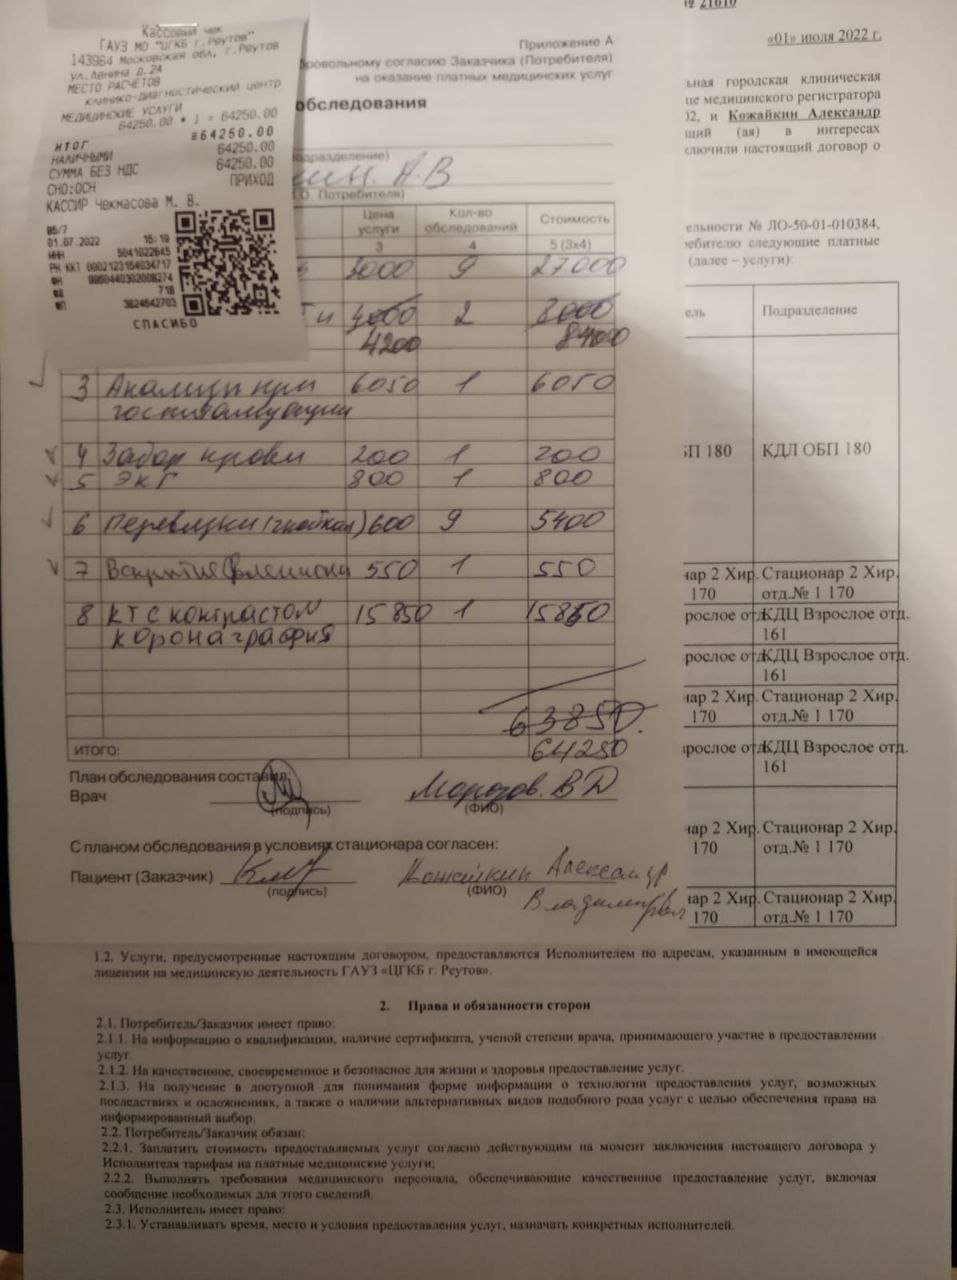 Кассовый чек
ГАУЗ МО "ЦГКБ г.Реутов"
143964 Московская обл, г.Реутов
ул.Ленина д.2А
МЕСТО РАСЧЕТОВ
клинико-диагностический центр
МЕДИЦИНСКИЕ УСЛУГИ
64250.00 * 1 = 64250.00
ИТОГ ≡64250.00
НАЛИЧНЫМИ 64250.00
СУММА БЕЗ НДС 64250.00
СНО:ОСН ПРИХОД
КАССИР Чекмасова М. В.
01.07.2022
ИНН 5041022645
РН ККТ
ФН
ФД 718
ФП 3824642703
СПАСИБО
№ 21610
«01» июля 2022 г.
Приложение А
бровольному согласию Заказчика (Потребителя)
на оказание платных медицинских услуг
обследования
одразделение)
А.В
.О. Потребителя)
Цена услуги Кол-во обследований Стоимость
3 4 5 (3х4)
3000 9 27000
4000 2 8000
4200 8400
3 Анализы при 6050 1 6050
госпитализации
4 Забор крови 200 1 200
5 ЭКГ 800 1 800
6 Перевязки (гнойная) 600 9 5400
7 Вскрытие флегмоны 550 1 550
8 КТ с контрастом 15850 1 15850
коронаграфия
63850
ИТОГО: 64250
План обследования составил:
Врач Морозов. В Д
(подпись) (ФИО)
С планом обследования в условиях стационара согласен:
Пациент (Заказчик) Кожайкин Александр
(подпись) (ФИО)
ьная городская клиническая
це медицинского регистратора
02, и Кожайкин Александр
щий (ая) в интересах
ключили настоящий договор о
ельности № ЛО-50-01-010384,
ебителю следующие платные
(далее – услуги):
ель Подразделение
БП 180 КДЛ ОБП 180
нар 2 Хир. Стационар 2 Хир.
170 отд.№ 1 170
рослое отд. КДЦ Взрослое отд.
161
рослое отд. КДЦ Взрослое отд.
161
нар 2 Хир. Стационар 2 Хир.
170 отд.№ 1 170
рослое отд. КДЦ Взрослое отд.
161
нар 2 Хир. Стационар 2 Хир.
170 отд.№ 1 170
нар 2 Хир. Стационар 2 Хир.
170 отд.№ 1 170
1.2. Услуги, предусмотренные настоящим договором, предоставляются Исполнителем по адресам, указанным в имеющейся
лицензии на медицинскую деятельность ГАУЗ «ЦГКБ г. Реутов».
2. Права и обязанности сторон
2.1. Потребитель/Заказчик имеет право:
2.1.1. На информацию о квалификации, наличие сертификата, ученой степени врача, принимающего участие в предоставлении
услуг.
2.1.2. На качественное, своевременное и безопасное для жизни и здоровья предоставление услуг.
2.1.3. На получение в доступной для понимания форме информации о технологии предоставления услуг, возможных
последствиях и осложнениях, а также о наличии альтернативных видов подобного рода услуг с целью обеспечения права на
информированный выбор.
2.2. Потребитель/Заказчик обязан:
2.2.1. Заплатить стоимость предоставляемых услуг согласно действующим на момент заключения настоящего договора у
Исполнителя тарифам на платные медицинские услуги;
2.2.2. Выполнять требования медицинского персонала, обеспечивающие качественное предоставление услуг, включая
сообщение необходимых для этого сведений.
2.3. Исполнитель имеет право:
2.3.1. Устанавливать время, место и условия предоставления услуг, назначать конкретных исполнителей.